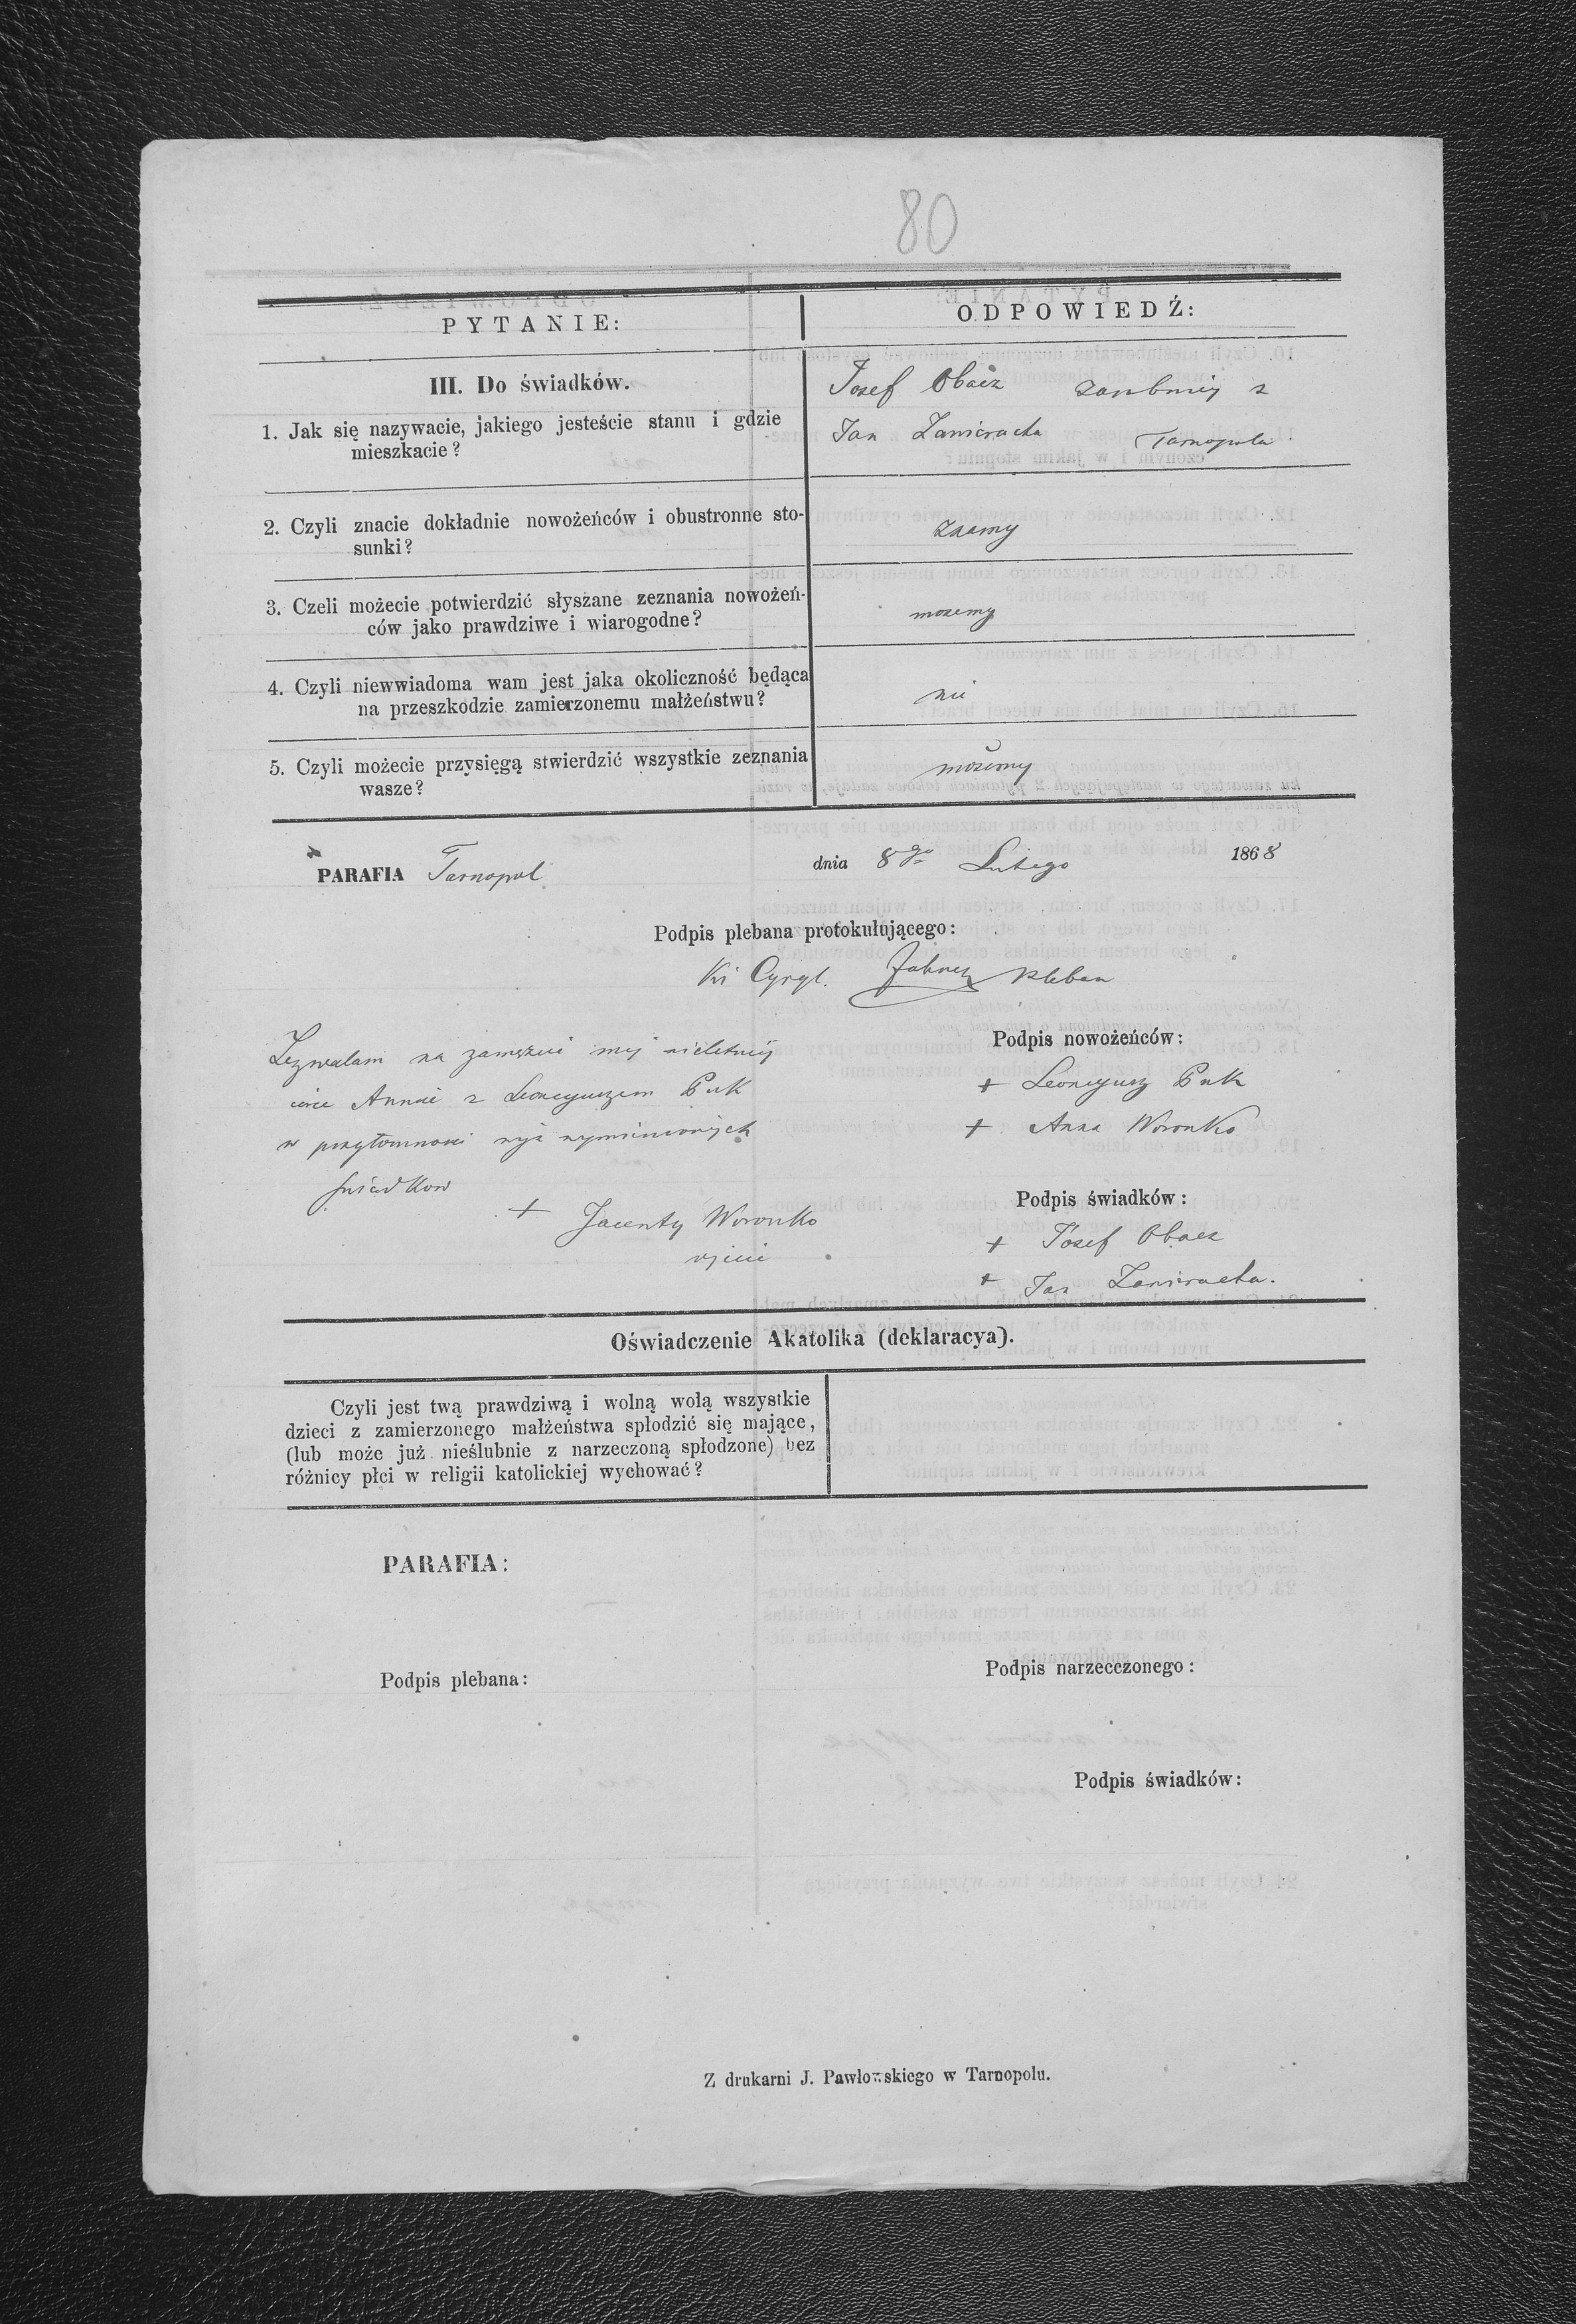 80
PYTANIE:
ODPOWIEDŹ:
III. Do świadków.
1. Jak się nazywacie, jakiego jesteście stanu i gdzie
mieszkacie?
Josef Obacz zarobnicy z
Jan Zawieracha Tarnopola
2. Czyli znacie dokładnie nowożeńców i obustronne sto-
sunki?
znamy
3. Czeli możecie potwierdzić słyszane zeznania nowożeń-
ców jako prawdziwe i wiarogodne?
mozemy
4. Czyli niewwiadoma wam jest jaka okoliczność będąca
na przeszkodzie zamierzonemu małżeństwu?
nie
5. Czyli możecie przysięgą stwierdzić wszystkie zeznania
wasze?
możemy
PARAFIA Tarnopol dnia 8go Lutego 1868
Podpis plebana protokułującego:
Cyryl. pleban
Zezwalam na zamęzcie mej nieletniej
Annie z Leoncyuszem Puk
w przytomnosci wyż wymienionych
swiadkow
+ Jacenty Woronko
ojciec
Podpis nowożeńców:
+ Leoncyusz Puk
+ Anna Woronko
Podpis świadków:
+ Josef Obacz
+ Jan Zawieracha.
Oświadczenie Akatolika (deklaracya).
Czyli jest twą prawdziwą i wolną wolą wszystkie
dzieci z zamierzonego małżeństwa spłodzić się mające,
(lub może już nieślubnie z narzeczoną spłodzone) bez
różnicy płci w religii katolickiej wychować?
PARAFIA:
Podpis plebana:
Podpis narzecczonego:
Podpis świadków:
Z drukarni J. Pawłowskiego w Tarnopolu.